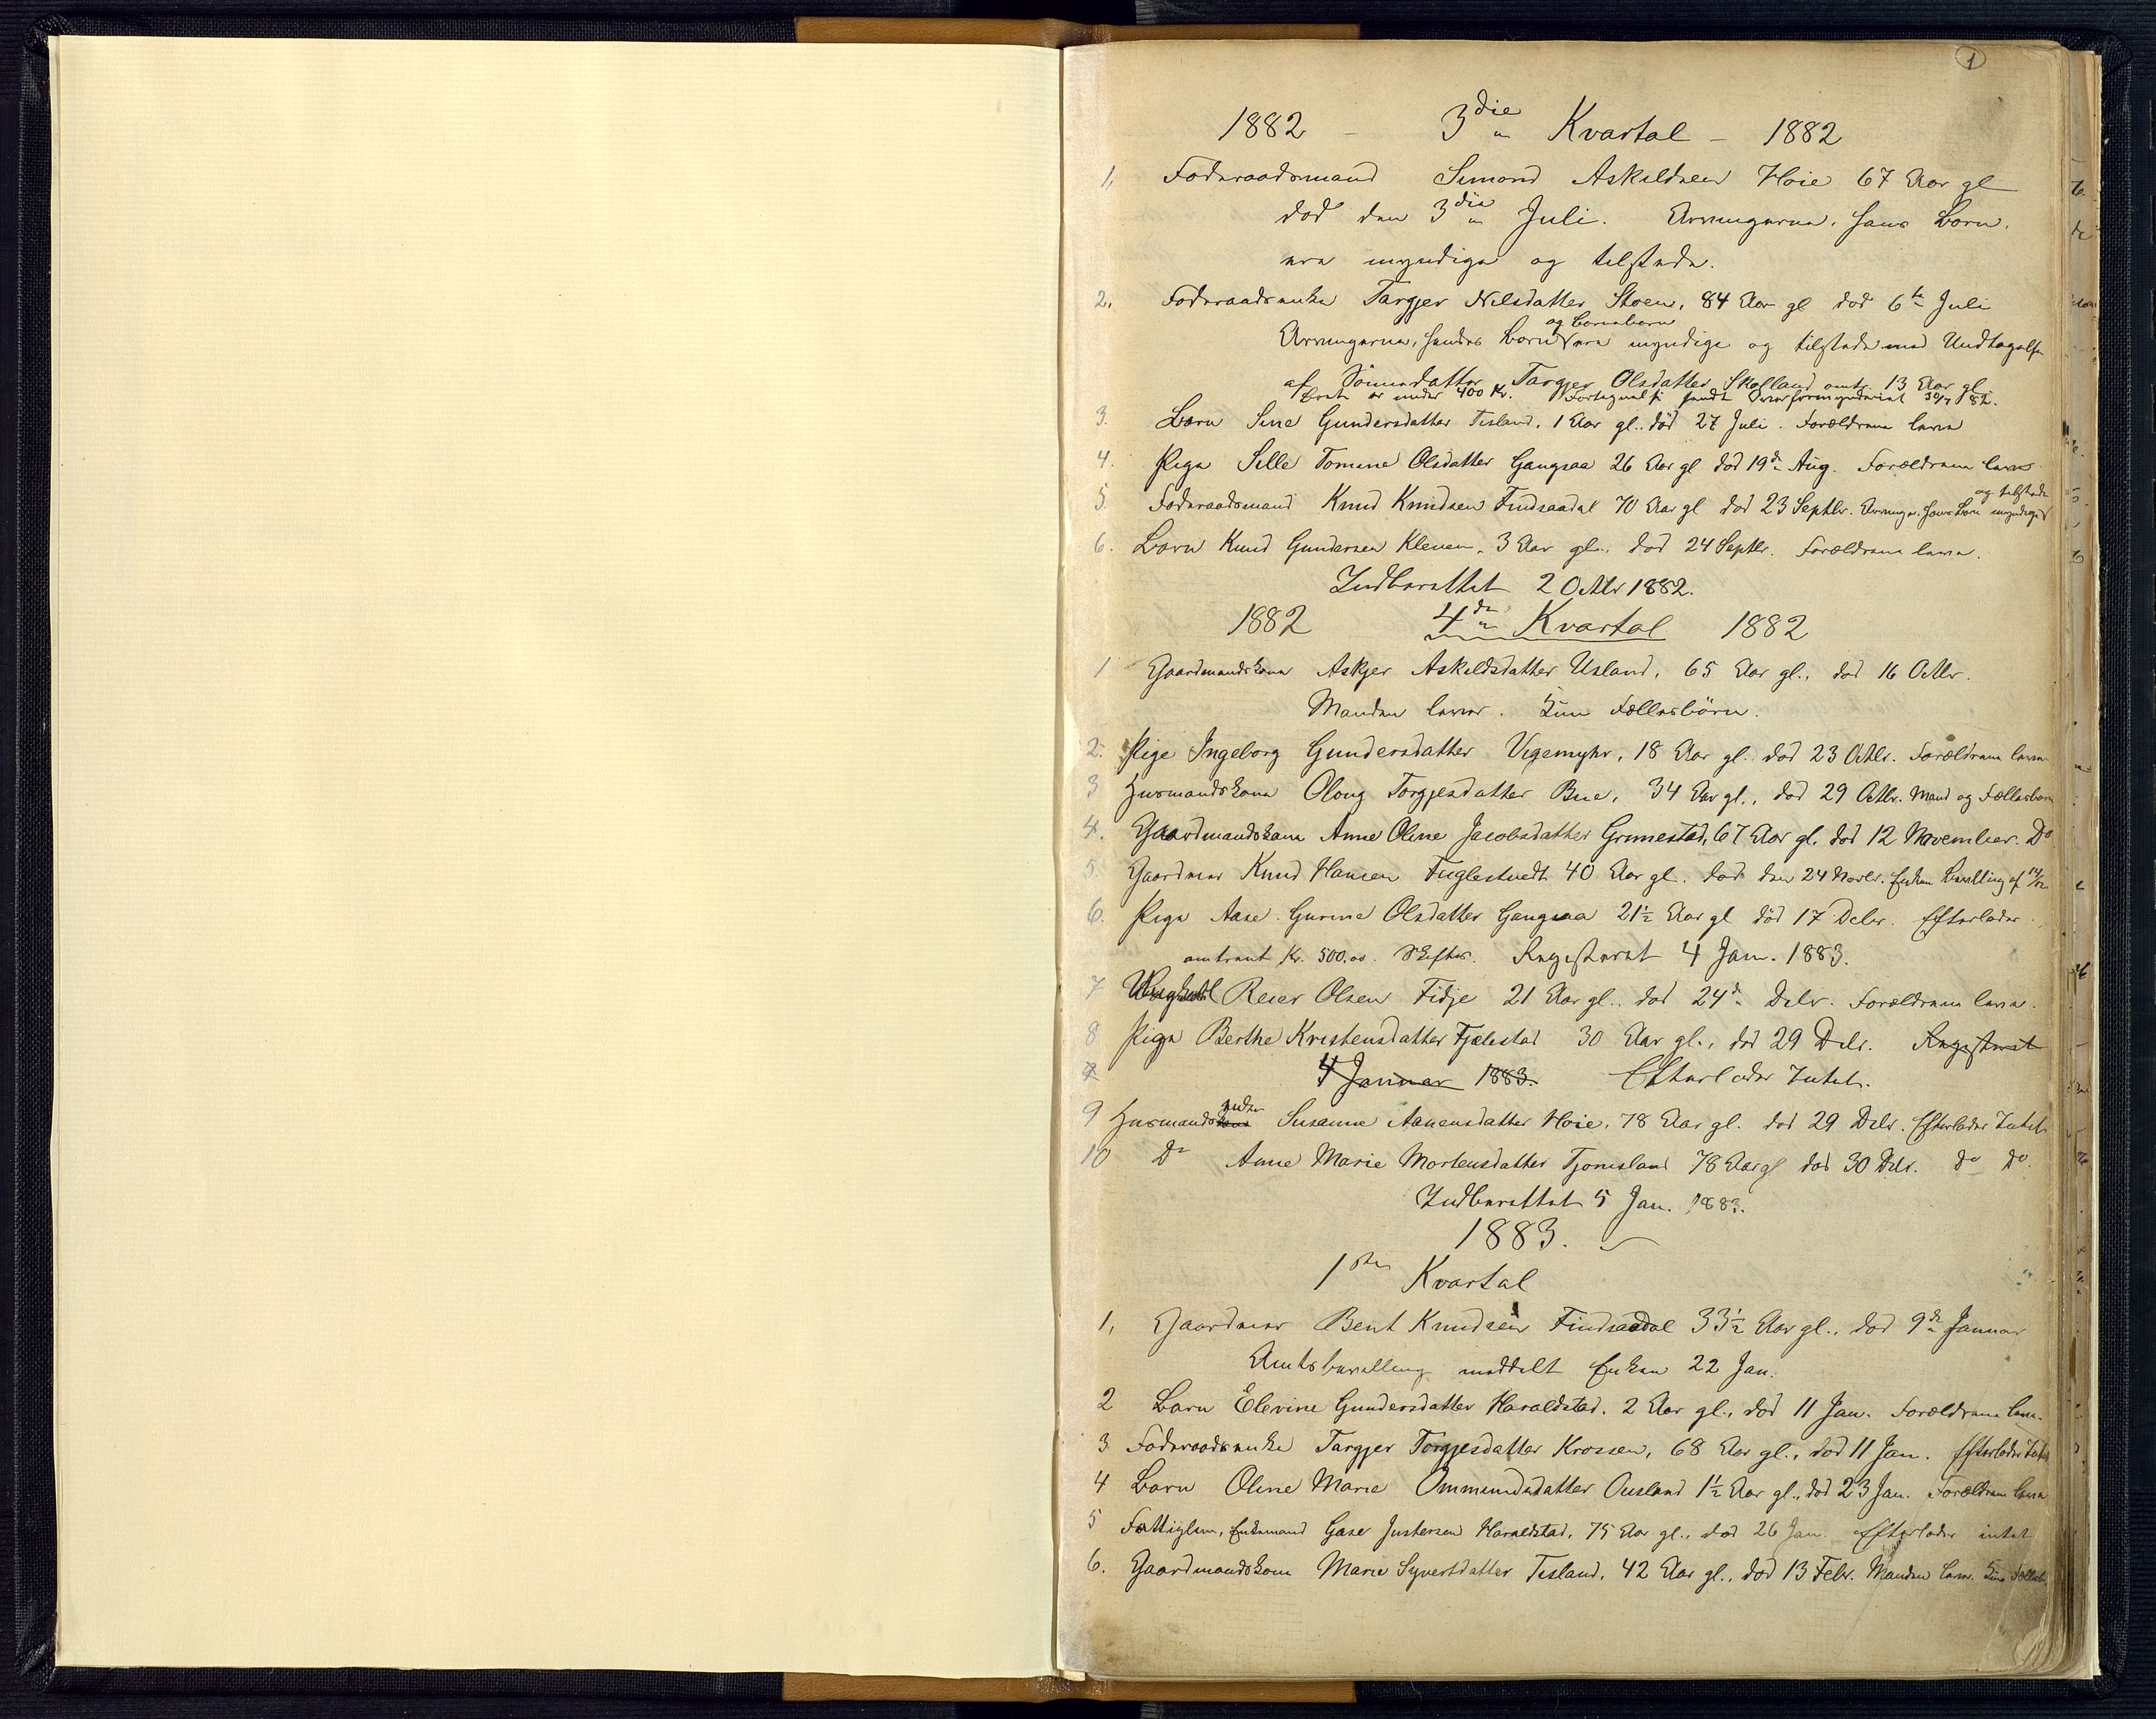 1
1882 - 3die Kvartal - 1882
1, Føderaadsmand Simond Askildsen Høie 67 Aar gl
død den 3die Juli. Arvingerne, hans Børn,
ere myndige og tilstede.
2. Føderaadsenke Targjer Nilsdatter Skoen, 84 Aar gl død 6te Juli
og Børnebørn
Arvingerne, hendes Børn ere myndige og tilstede med Undtagelse
af Sønnedatter Targjer Olsdatter Skolland omtr. 13 Aar gl
Boets er under 400 Kr. Fortegnelse sendt Overformynderiet 30/7 82.
3. Barn Sine Gundersdatter Tisland, 1 Aar gl. død 27 Juli. Forældrene leve
4. Pige Sille Tomine Olsdatter Gangsaa 26 Aar gl død 19de Aug. Forældrene leve
og tilstede
5. Føderaadsmand Knud Knudsen Findsaadal 70 Aar gl død 23 Septbr. Arvinger, hans Børn myndige
6. Barn Knud Gundersen Kleven, 3 Aar gl., død 24 Septbr. Forældrene leve.
Indberettet 2 Octbr 1882.
1882 4de Kvartal 1882
1 Gaardmandskone Askjer Askildsdatter Usland, 65 Aar gl., død 16 Octbr.
Manden lever. Kun Fællesbørn.
2. Pige Ingeborg Gundersdatter Vegemyhr, 18 Aar gl. død 23 Octbr. Forældrene leve
3 Husmandskone Oloug Torgjesdatter Bue, 34 Aar gl., død 29 Octbr. Mand og Fællesbørn
4. Gaardmandskone Anne Oline Jacobsdatter Grimestad, 67 Aar gl. død 12 November. Do
5. Gaardmand Knud Hansen Fuglestvedt 40 Aar gl. død den 24 Novbr. Enken Bevilling af 14/12
6. Pige Aase Gurine Olsdatter Gangsaa 21½ Aar gl død 17 Debr. Efterlader
omtrent Kr. 500.00. Registreret 4 Jan. 1883.
7 Ungkarl Reier Olsen Fidje 21 Aar gl. død 24de Debr. Forældrene leve.
8 Pige Berthe Kristensdatter Fjælestad 30 Aar gl., død 29 Debr. Registreret
4 Januar 1883. Efterlader Intet.
enke
9 Husmandskone Susanne Aanensdatter Høie, 78 Aar gl. død 29 Debr. Efterlader Intet
10 Do Anne Marie Mortensdatter Tjomsland 78 Aar gl død 30 Debr. do do.
Indberettet 5 Jan. 1883.
1883.
1ste Kvartal
1, Gaardmand Bent Knudsen Findsaadal 33½ Aar gl., død 9de Januar
Amtsbevilling meddelt Enken 22 Jan.
2 Barn Elevine Gundersdatter Haraldstad. 2 Aar gl., død 11 Jan. Forældrene leve.
3 Føderaadsenke Targjer Torgjesdatter Krossen, 68 Aar gl., død 11 Jan. Efterlader Intet
4 Barn Oline Marie Ommundsdatter Ousland 1½ Aar gl., død 23 Jan. Forældrene leve
5 Fattiglem, Enkemand Gaser Justersen Haraldstad, 75 Aar gl., død 26 Jan. Efterlader intet
6. Gaardmandskone Marie Syvertsdatter Tisland, 42 Aar gl., død 13 Febr. Manden lever. Kun Fællesb.